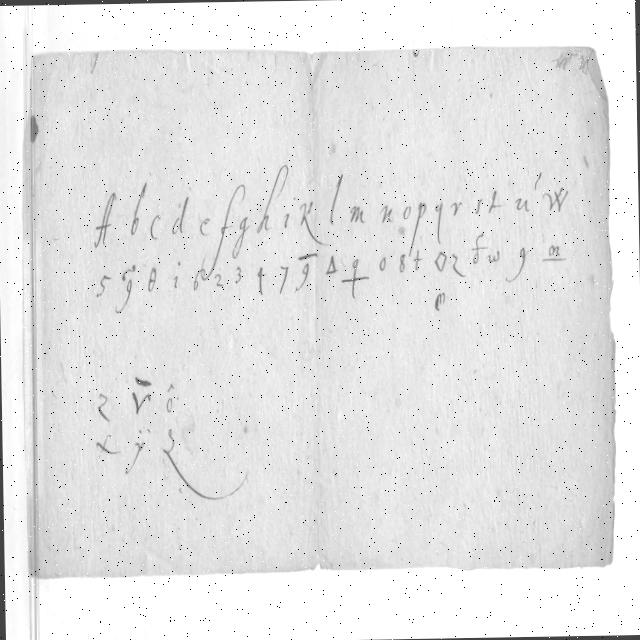 A b c d e f g h i K l m n o p q r s t u w
5 ÿ θ i 6 2 3 4 7 9̄ Δ q 0 8 t ◊ 2 f w 9 m
2 v̄ ô
x ÿ z